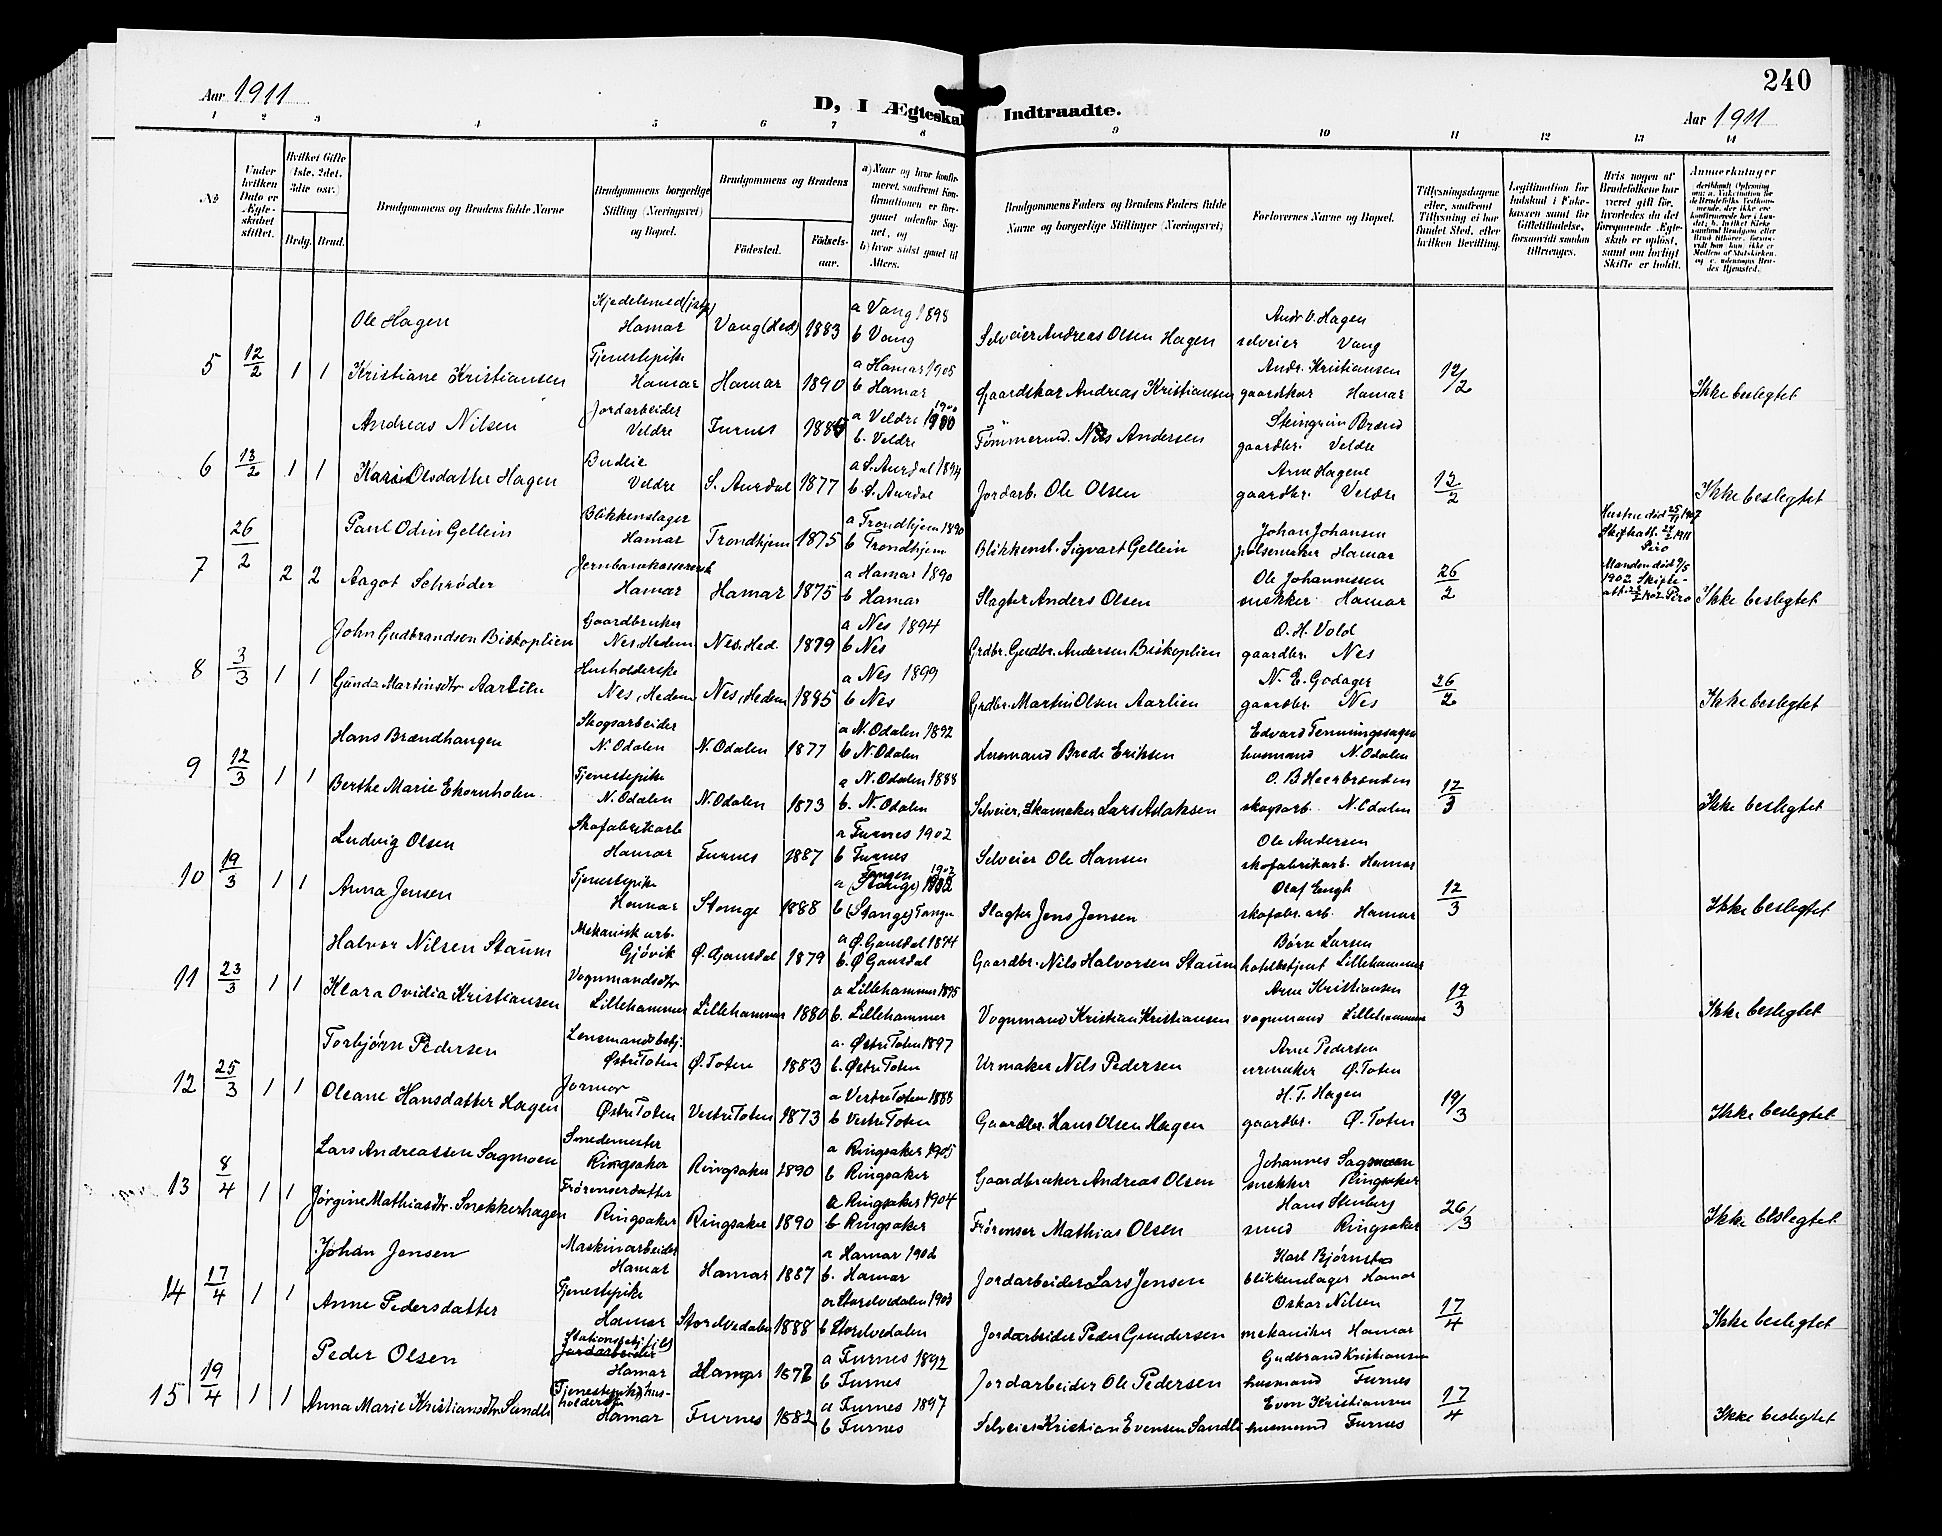 240
Aar 1911
D, I Ægteskab Indtraadte.
Aar 1911
1 2 3 4 5 6 7 8 9 10 11 12 13 14
No
Under hvilken Dato er Ægteskabet stiftet.
Hvilket Gifte (1ste, 2det, 3die osv.)
Brdg. Brud.
Brudgommens og Brudens fulde Navne
Brudgommens borgerlige Stilling (Næringsvei) og Bopæl.
Brudgommens og Brudens
Fødested. Fødselsaar.
a) Naar og hvor konfirmeret, saafremt Konfirmationen er foregaaet udenfor Sognet, og
b) hvor sidst gaaet til Alters.
Brudgommens Faders og Brudens Faders fulde Navne og borgerlige Stillinger (Næringsvei)
Forlovernes Navne og Bopæl.
Tillysningsdagene eller, saafremt Tillysning ei har fundet Sted, efter hvilken Bevilling.
Legitimation for Indskud i Enkekassen samt for Giftetilladelse, forsaavidt saadan tiltrænges.
Hvis nogen af Brudefolkene har været gift før, hvorledes da det foregaaende Ægteskab er opløst, samt om lovligt Skifte er holdt.
Anmerkninger
Ole Hagen Kjedelsmed Hamar Vang (Hed) 1883 a Vang 1898 b Vang Selveier Andreas Olsen Hagen Andr. O. Hagen selveier Vang
5 12/2 1 1 Kristiane Kristiansen Tjenestepike Hamar Hamar 1890 a Hamar 1905 b Hamar Gaardskar Andreas Kristiansen Andr. Kristiansen gaardskar Hamar 12/2 Ikke beslegtet
Andreas Nilsen Jordarbeider Veldre Furnes a Veldre 1900 b. Veldre Tømmermd. Nils Andersen Steingrim Brænd gaardbr. Veldre
6 13/2 1 1 Kari Olsdatter Hagen Budeie Veldre S. Aurdal 1877 a S. Aurdal 1894 b S. Aurdal Jordarb. Ole Olsen Arne Hagene gaardbr. Veldre 12/2 Ikke beslegtet
Paul Odin Gellein Blikkenslager Hamar Trondhjem 1875 a Trondhjem 1890 b Trondhjem Blikkensl. Sigvart Gellein Johan Johansen pølsemaker Hamar Hustru død 25/11 1907
7 26/2 2 2 Aagot Schrøder Hamar Hamar 1875 a Hamar 1890 b Hamar Slagter Anders Olsen Ole Johannessen snekker Hamar 26/2 Manden død 9/5 1902 Ikke beslegtet
John Gudbrandsen Biskoplien Gaardbruker Nes, Hedem Nes, Hed. 1879 a Nes 1894 b Nes Grdbr. Gudbr. Andersen Biskoplien O. H. Vold gaardbr. Nes
8 3/3 1 1 Gunda Martinsdtr Aarlien Husholderske Nes, Hedem Nes, Hedem 1885 a Nes 1899 b Nes Grdbr. Martin Olsen Aarlien N. E. Godager gaardbr. Nes 26/2 Ikke beslegtet
Hans Brændhangen Skogsarbeider N. Odalen N. Odalen 1877 a N. Odalen 1892 b N. Odalen Husmand Brede Eriksen Edvard husmand N. Odalen
9 12/3 1 1 Berthe Marie Ekornholen Tjenestepike N. Odalen N. Odalen 1873 a N. Odalen 1888 b. N. Odalen Selveier, Skomaker Lars Aslaksen O. B. Heerbranden skogsarb. N. Odalen 12/3 Ikke beslegtet
Ludvig Olsen Skofabrikarb Hamar Furnes 1887 a Furnes 1902 b Furnes Selveier Ole Hansen Ole Andersen skofabrikarb. Hamar
10 19/3 1 1 Anna Jensen Tjenestepike Hamar Stange 1888 a Tangen (Stange) 1902 b (Stange) Tangen Slagter Jens Jensen Olaf Engh skofabr. arb. Hamar 12/3 Ikke beslegtet
Halvor Nilsen Staum Mekanisk arb. Gjøvik Ø. Gausdal 1879 a Ø. Gausdal 1894 b. Ø Gausdal Gaardbr. Nils Halvorsen Staum Børre Larsen hotelbetjent Lillehammer
11 23/3 1 1 Klara Ovidia Kristiansen Vognmandsdtr Lillehammer Lillehammer 1880 a Lillehammer 1895 b. Lillehammer Vognmand Kristian Kristiansen Arne Kristiansen vognmand Lillehammer 19/3 Ikke beslegtet
Torbjørn Pedersen Lensmandsbetj. Østre Toten Ø. Toten 1883 a. Østre Toten 1897 b. Østre Toten Urmaker Nils Pedersen Arne Pedersen urmaker Ø. Toten
12 25/3 1 1 Oleane Hansdatter Hagen Jormor Østre Toten Vestre Toten 1873 a Vestre Toten 1888 b Vestre Toten Gaardbr. Hans Olsen Hagen H. T. Hagen gaardbr. Ø. Toten 19/3 Ikke beslegtet
Lars Andreassen Sagmoen Smedemester Ringsaker Ringsaker 1890 a Ringsaker 1905 b Ringsaker Gaardbruker Andreas Olsen Johannes Sagmoen snekker Ringsaker
13 8/4 1 1 Jørgine Mathiasdtr. Snekkerhagen Frørenserdatter Ringsaker Ringsaker 1890 a Ringsaker 1904 b Ringsaker Frørenser Mathias Olsen Hans Stenberg smed Ringsaker 26/3 Ikke beslegtet
Johan Jensen Maskinarbeider Hamar Hamar 1887 a Hamar 1902 b. Hamar Jordarbeider Lars Jensen Karl Bjørnstad blikkenslager Hamar
14 17/4 1 1 Anne Pedersdatter Tjenestepike Hamar Storelvedalen 1888 a Storelvedalen 1903 b Storelvedalen Jordarbeider Peder Gundersen Oskar Nilsen mekaniker Hamar 17/4 Ikke beslegtet
Peder Olsen Jordarbeider Hamar Hamar a Furnes 1892 b Furnes Jordarbeider Ole Pedersen Gudbrand Kristiansen husmand Furnes
15 19/4 1 1 Anna Marie Kristiansdtr Sandli Tjenestepike husholderske Hamar Furnes 1882 a Furnes 1897 b Furnes Selveier Kristian Evensen Sandli Even Kristiansen husmand Furnes 17/4 Ikke beslegtet